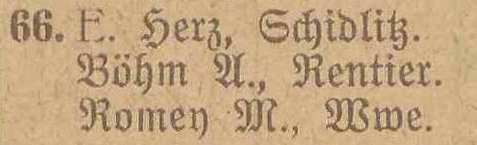 66. E. Herz, Schidlitz.
Böhm A., Rentier.
Romey M., Wwe.